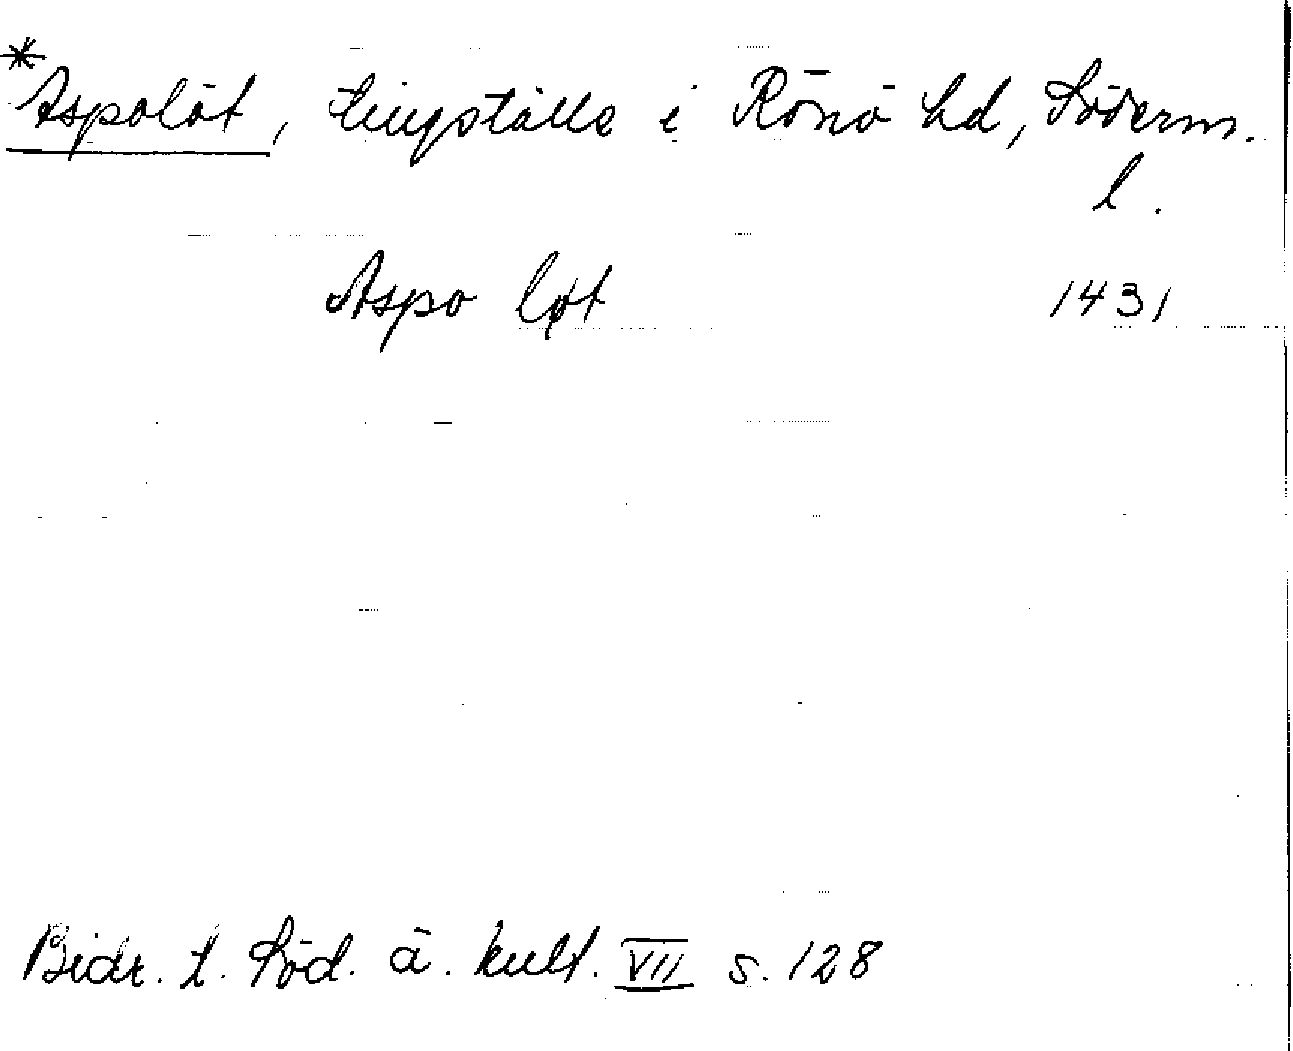 *Aspolöt, tingställe i Rönö hd, Söderm.
l.
Aspo løt 1431
Bidr. t. Söd. ä. kult. VII s. 128